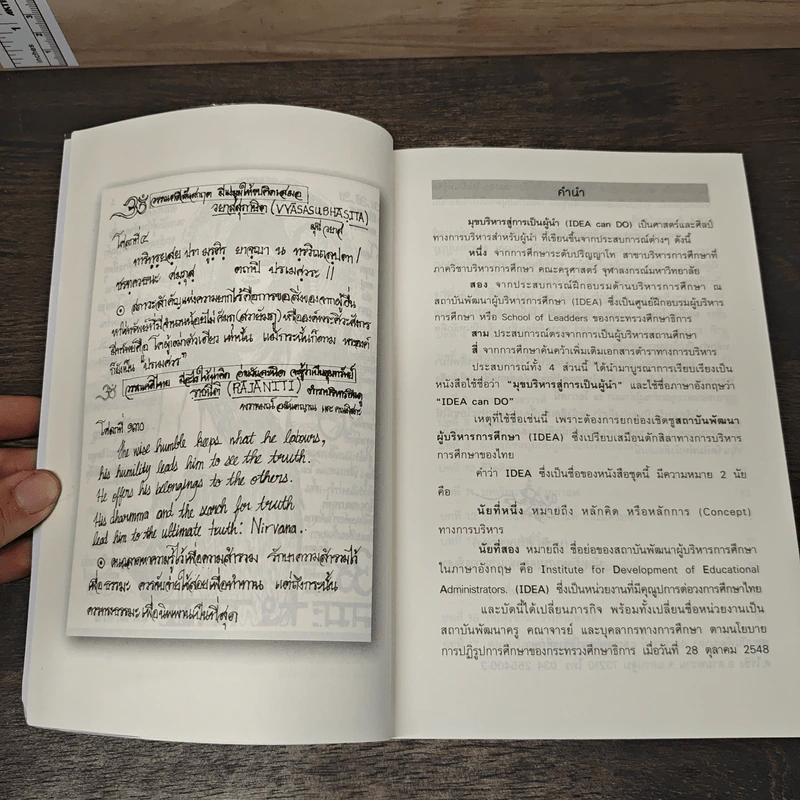 วรรณคดีสันสกฤต มีแง่มุมให้ขบคิดเสมอ
วยาสสุภาษิต (VYĀSASUBHĀṢITA)
โศลกที่ ๔
สภาวะสำคัญแห่งความยากไร้คือการขอสิ่งของจากผู้อื่น
ก็ยังเป็น "ปรเมศวร"
วรรณคดีไทย
ราชนีติ (RĀJANĪTI)
โศลกที่ ๑๓๐
The wise humble keeps what he labours,
his humility leads him to see the truth.
He offers his belongings to the others.
His dhamma and the search for truth
lead him to the ultimate truth: Nirvana.
คนฉลาดหาความรู้ไว้เพื่อความสำรวม รักษาความสำรวมไว้
เพื่อธรรมะ ควรจับจ่ายใช้สอยเพื่อทำทาน แต่ถึงกระนั้น
ควรหาธรรมะเพื่อนิพพานเป็นที่สุด
คำนำ
มุขบริหารสู่การเป็นผู้นำ (IDEA can DO) เป็นศาสตร์และศิลป์
ทางการบริหารสำหรับผู้นำ ที่เขียนขึ้นจากประสบการณ์ต่างๆ ดังนี้
หนึ่ง จากการศึกษาระดับปริญญาโท สาขาบริหารการศึกษาที่
ภาควิชาบริหารการศึกษา คณะครุศาสตร์ จุฬาลงกรณ์มหาวิทยาลัย
สอง จากประสบการณ์ฝึกอบรมด้านบริหารการศึกษา ณ
สถาบันพัฒนาผู้บริหารการศึกษา (IDEA) ซึ่งเป็นศูนย์ฝึกอบรมผู้บริหาร
การศึกษา หรือ School of Leadders ของกระทรวงศึกษาธิการ
สาม ประสบการณ์ตรงจากการเป็นผู้บริหารสถานศึกษา
สี่ จากการศึกษาค้นคว้าเพิ่มเติมเอกสารตำราทางการบริหาร
ประสบการณ์ทั้ง 4 ส่วนนี้ ได้นำมาบูรณาการเรียบเรียงเป็น
หนังสือใช้ชื่อว่า "มุขบริหารสู่การเป็นผู้นำ" และใช้ชื่อภาษาอังกฤษว่า
"IDEA can DO"
เหตุที่ใช้ชื่อเช่นนี้ เพราะต้องการยกย่องเชิดชูสถาบันพัฒนา
ผู้บริหารการศึกษา (IDEA) ซึ่งเปรียบเสมือนตักสิลาทางการบริหาร
การศึกษาของไทย
คำว่า IDEA ซึ่งเป็นชื่อของหนังสือชุดนี้ มีความหมาย 2 นัย
คือ
นัยที่หนึ่ง หมายถึง หลักคิด หรือหลักการ (Concept)
ทางการบริหาร
นัยที่สอง หมายถึง ชื่อย่อของสถาบันพัฒนาผู้บริหารการศึกษา
ในภาษาอังกฤษ คือ Institute for Development of Educational
Administrators. (IDEA) ซึ่งเป็นหน่วยงานที่มีคุณูปการต่อวงการศึกษาไทย
และบัดนี้ได้เปลี่ยนภารกิจ พร้อมทั้งเปลี่ยนชื่อหน่วยงานเป็น
สถาบันพัฒนาครู คณาจารย์ และบุคลากรทางการศึกษา ตามนโยบาย
การปฏิรูปการศึกษาของกระทรวงศึกษาธิการ เมื่อวันที่ 28 ตุลาคม 2548